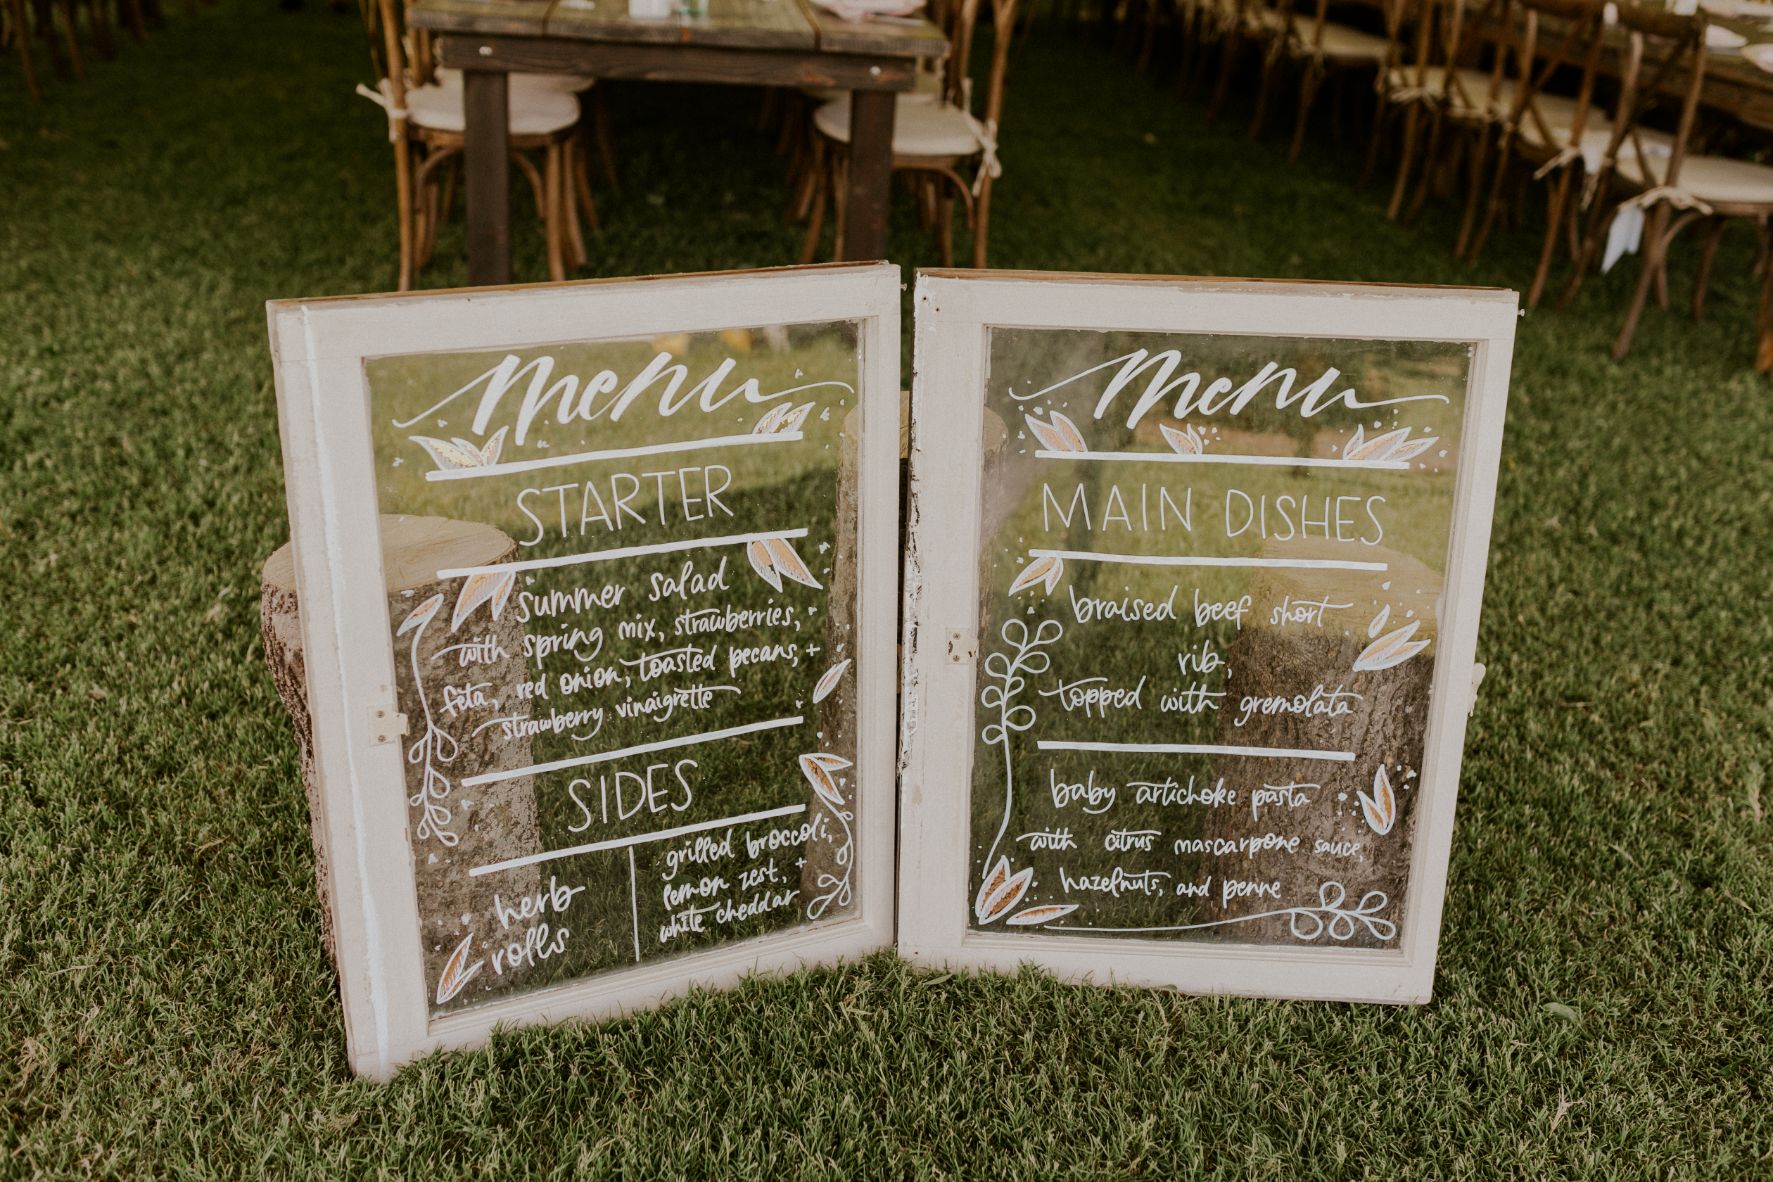 menu
STARTER
summer salad
with spring mix, strawberries,
feta, red onion, toasted pecans, +
strawberry vinaigrette
SIDES
herb
rolls
grilled broccoli,
lemon zest, +
white cheddar
menu
MAIN DISHES
braised beef short
rib,
topped with gremolata
baby artichoke pasta
with citrus mascarpone sauce,
hazelnuts, and penne